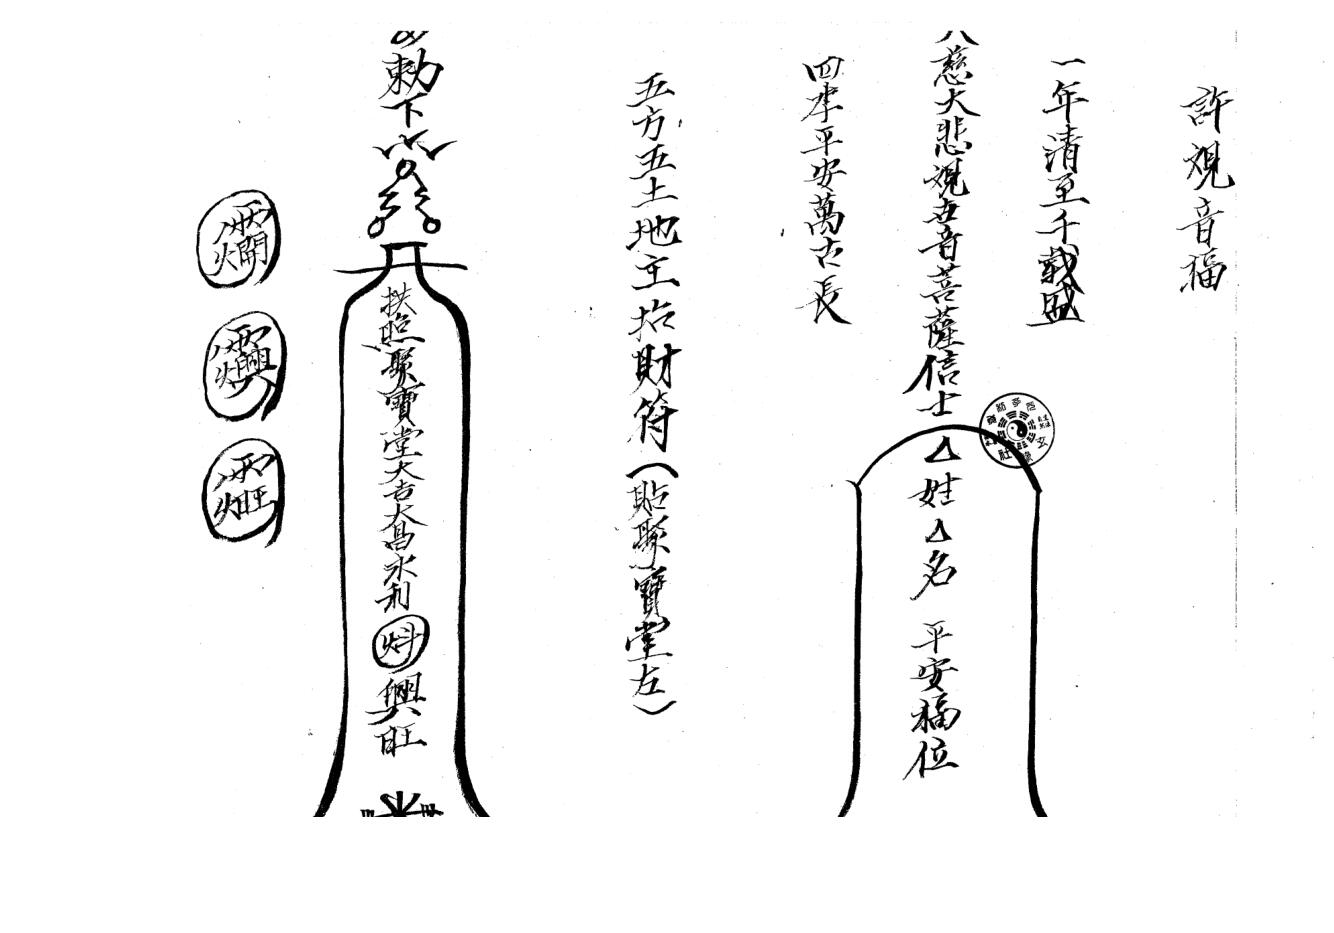 許觀音福
一年清至千載盛
大慈大悲觀世音菩薩信士
姓 名 平安福位
四季平安萬古長
五方五土地主招財符（貼聚寶堂左）
勅下
拱照聚寶堂大吉大昌永利
興旺